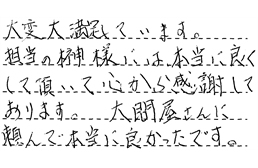 大変大満足しています。
担当の榊様には本当に良く
して頂いて心から感謝して
おります。 大問屋さんに
頼んで本当に良かったです。